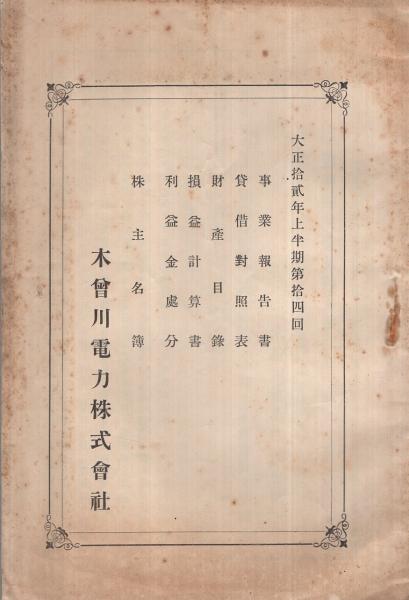 大正拾貳年上半期第拾四回
事業報告書
貸借對照表
財產目錄
損益計算書
利益金處分
株主名簿
木曾川電力株式會社